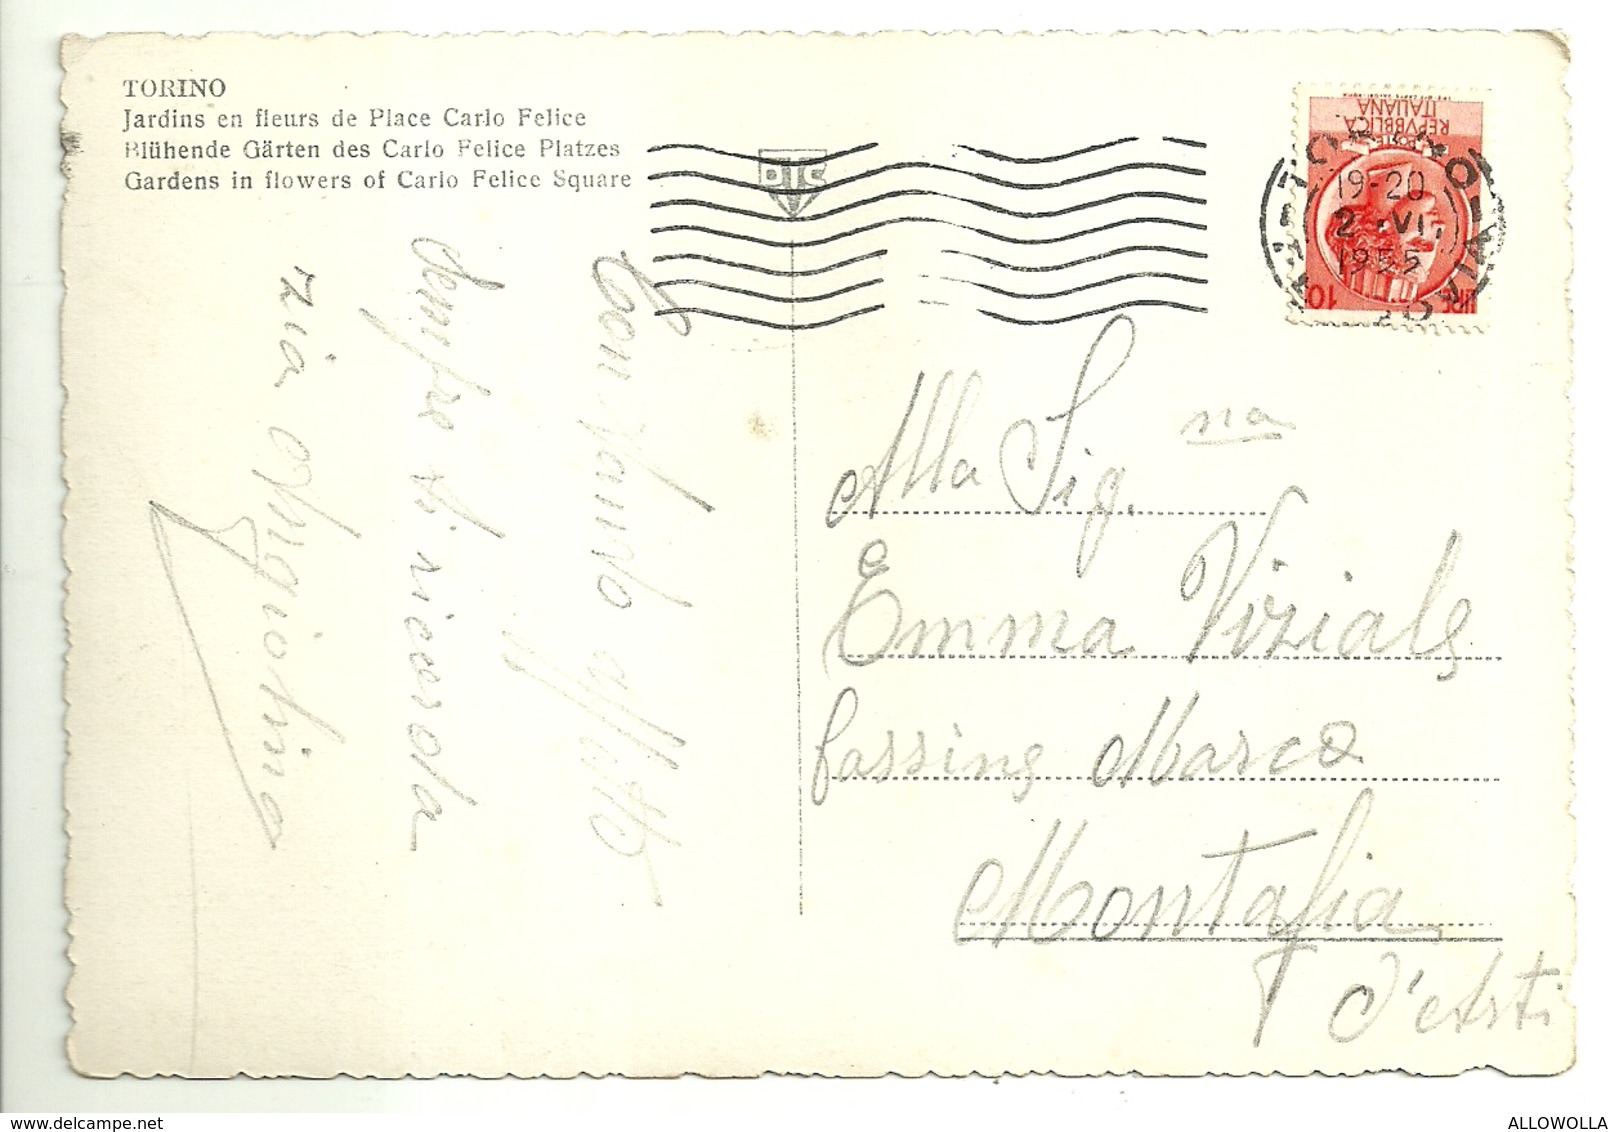 TORINO
Jardins en fleurs de Place Carlo Felice
Blühende Gärten des Carlo Felice Platzes
Gardens in flowers of Carlo Felice Square
DTC
REPVBBLICA
ITALIANA
POSTE
LIRE 10
TORINO
19-20
2 · VI.
1955
Con tanto affetto
sempre ti ricorda
zia Angiolina
Alla Sig.na
Emma Viziale
fassino Marco
Montafia
d'Asti
ALLOWOLLA